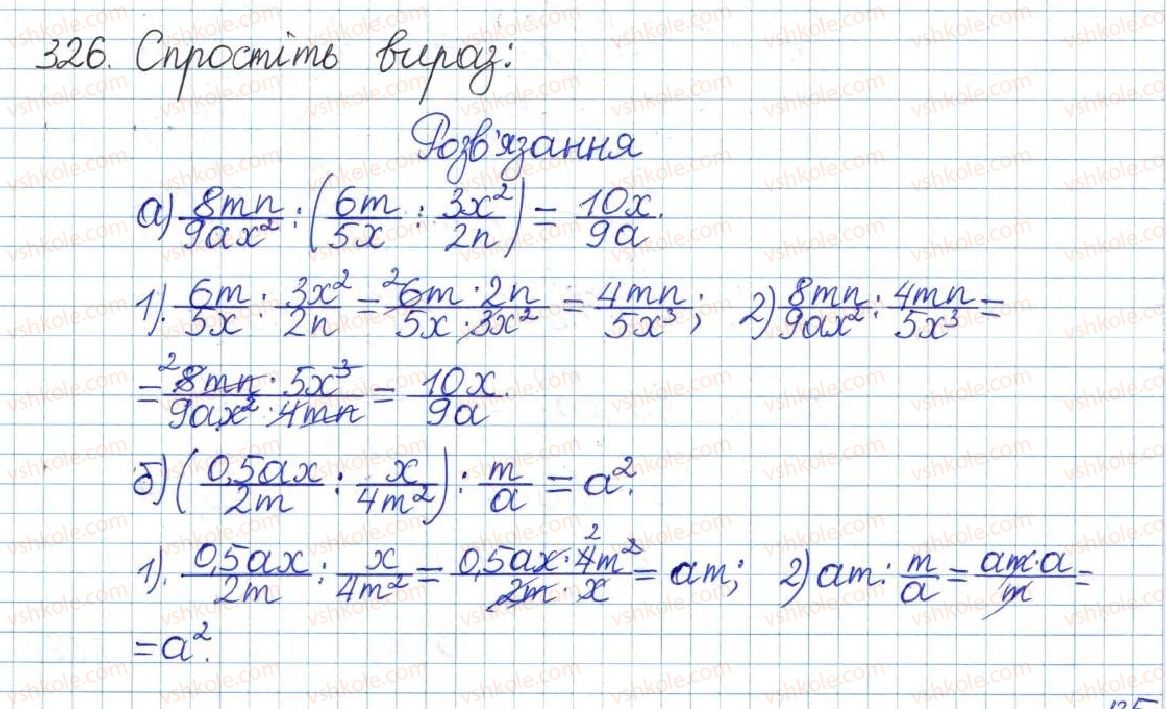 326. Спростіть вираз:
Розв'язання
а) 8mn/9ax² : (6m/5x : 3x²/2n) = 10x/9a.
1). 6m/5x : 3x²/2n = ²6m · 2n/5x · 3x² = 4mn/5x³; 2) 8mn/9ax² : 4mn/5x³ =
= ²8mn · 5x³/9ax² · 4mn = 10x/9a.
б) (0,5ax/2m : x/4m²) : m/a = a².
1). 0,5ax/2m : x/4m² = 0,5ax · ²4m²/2m · x = am; 2) am : m/a = am·a/m =
= a².